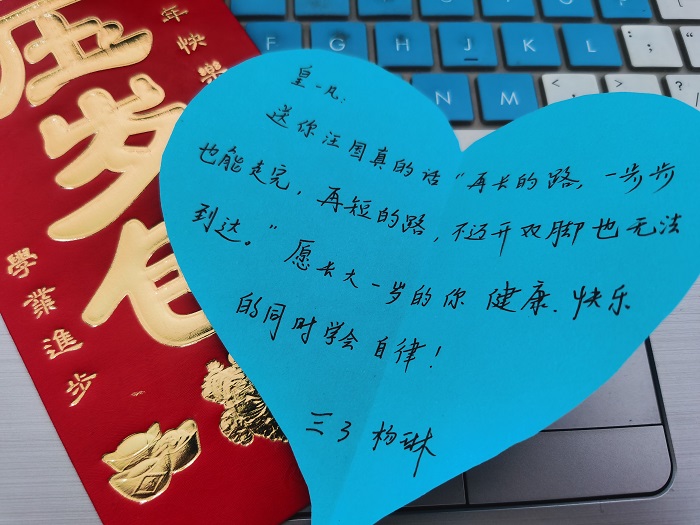 年快樂
压岁包
學業進步
F G H J K L
N M
皇一凡:
送你汪国真的话“再长的路,一步步
也能走完,再短的路,不迈开双脚也无法
到达。”愿长大一岁的你 健康、快乐
的同时学会自律!
三3 杨琳